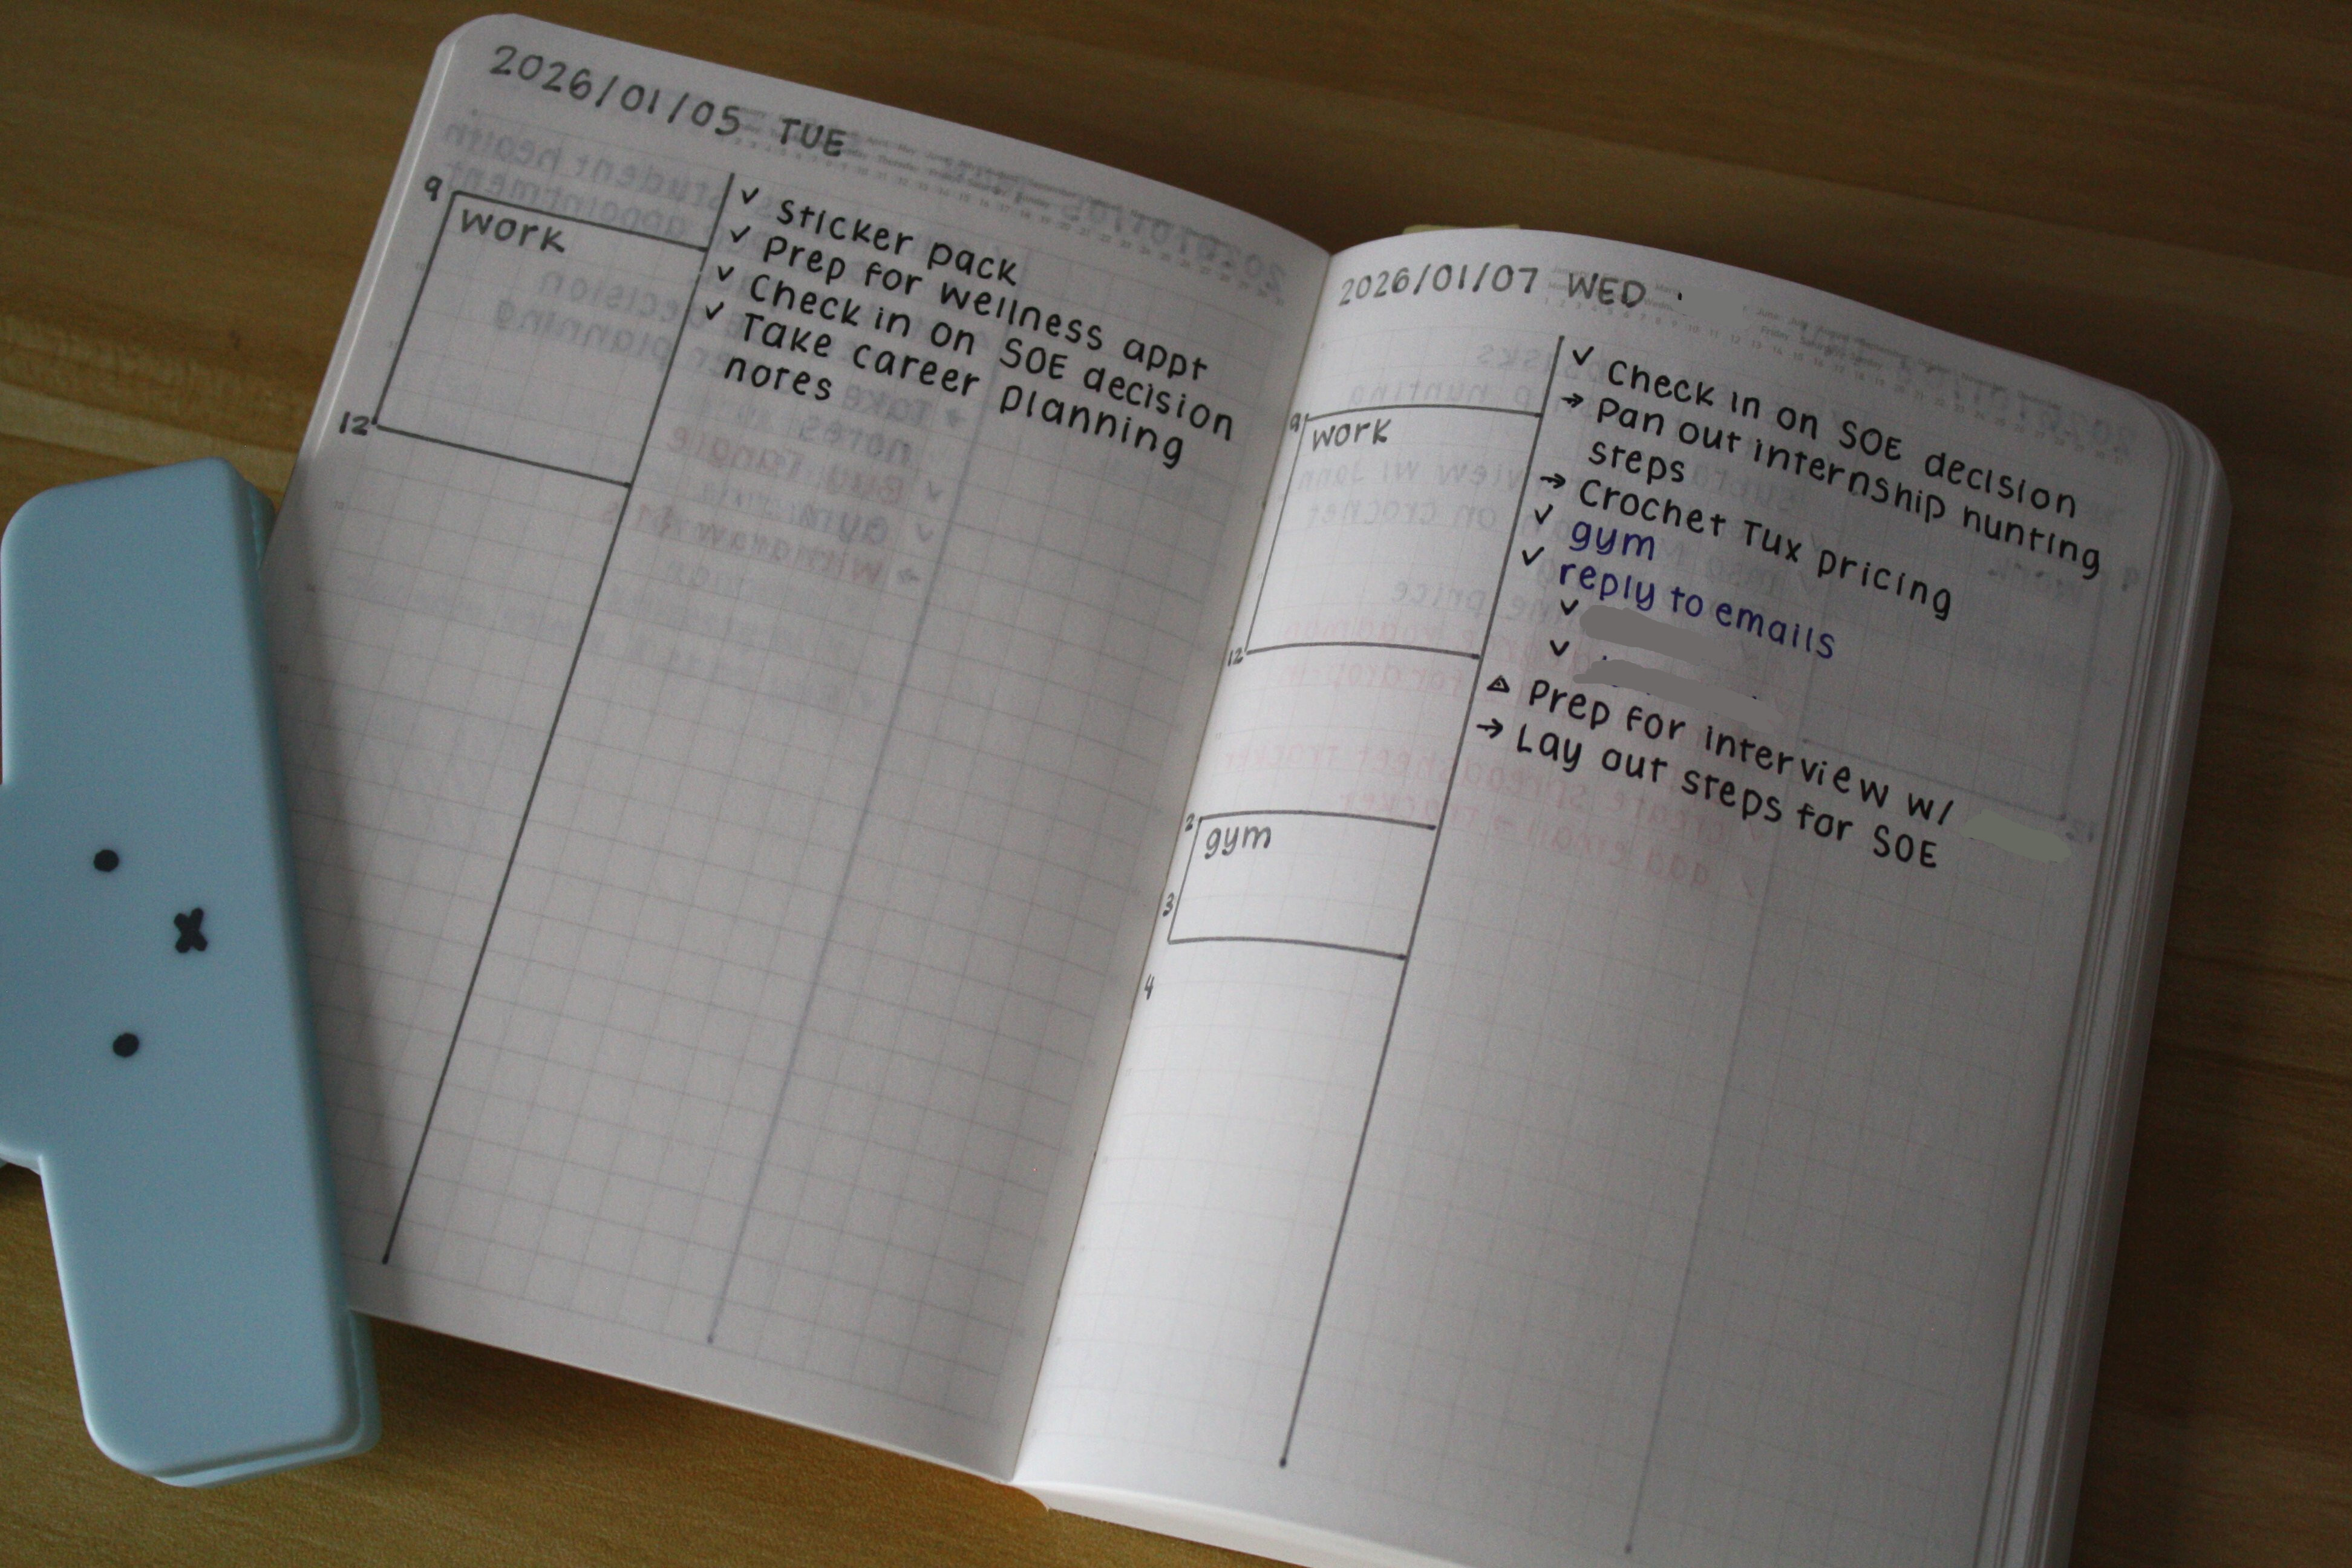 2026/01/05 TUE
9
work
12
✓ sticker pack
✓ Prep for wellness appt
✓ Check in on SOE decision
✓ Take career planning
notes
2026/01/07 WED
9
work
12
2
gym
3
4
✓ Check in on SOE decision
→ Pan out internship hunting
steps
→ Crochet Tux pricing
✓ gym
✓ reply to emails
✓
✓
△ Prep for interview w/
→ Lay out steps for SOE